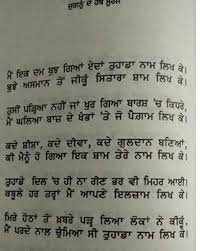 ਜੁਗਨੂੰ ਦੇ ਹੱਥ ਸੂਰਜ
ਮੈਂ ਇਕ ਦਮ ਬੁਝ ਗਿਆ ਏਦਾਂ ਤੁਹਾਡਾ ਨਾਮ ਲਿਖ ਕੇ।
ਬੁਝੇ ਅਸਮਾਨ ਤੋਂ ਜੀਕੂੰ ਸਿਤਾਰਾ ਸ਼ਾਮ ਲਿਖ ਕੇ।
ਤੁਸੀਂ ਪੜ੍ਹਿਆ ਨਹੀਂ ਜਾਂ ਖੁਰ ਗਿਆ ਬਾਰਸ਼ 'ਚ ਕਿਧਰੇ,
ਮੈਂ ਘਲਿਆ ਬਾਜ਼ ਦੇ ਖੰਭਾਂ 'ਤੇ ਜੋ ਪੈਗ਼ਾਮ ਲਿਖ ਕੇ।
ਕਦੇ ਸ਼ੀਸ਼ਾ, ਕਦੇ ਦੀਵਾ, ਕਦੇ ਗੁਲਦਾਨ ਬਣਿਆਂ,
ਕੀ ਮੈਨੂੰ ਹੋ ਗਿਆ ਇਕ ਸ਼ਾਮ ਤੇਰੇ ਨਾਮ ਲਿਖ ਕੇ।
ਤੁਹਾਡੇ ਦਿਲ 'ਚ ਹੀ ਨਾ ਰੀਣ ਭਰ ਵੀ ਮਿਹਰ ਆਈ।
ਕਬੂਲੇ ਹਰ ਤਰ੍ਹਾਂ ਮੈਂ ਆਪਣੇ ਇਲਜ਼ਾਮ ਲਿਖ ਕੇ।
ਮਿਰੇ ਹੋਠਾਂ ਤੋਂ ਖ਼ਬਰੇ ਪੜ੍ਹ ਲਿਆ ਲੋਕਾਂ ਨੇ ਕੀਕੂੰ,
ਮੈਂ ਪਰਦੇ ਨਾਲ ਚੁੰਮਿਆ ਸੀ ਤੁਹਾਡਾ ਨਾਮ ਲਿਖ ਕੇ।